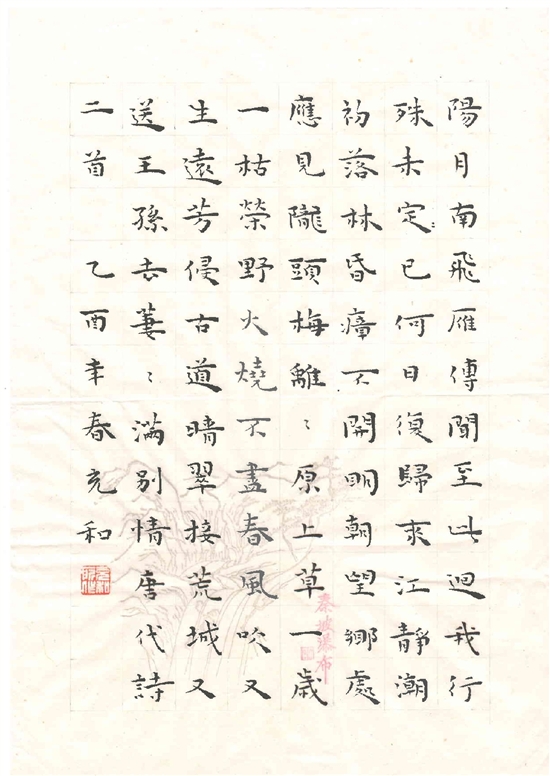 陽月南飛雁傳聞至此迴我行
殊未定已何日復歸来江靜潮
初落林昏瘴不開明朝望鄉處
應見隴頭梅離〻原上草一歲
一枯榮野火燒不盡春風吹又
生遠芳侵古道晴翠接荒城又
送王孫去萋〻滿別情唐代詩
二首 乙酉年春充和